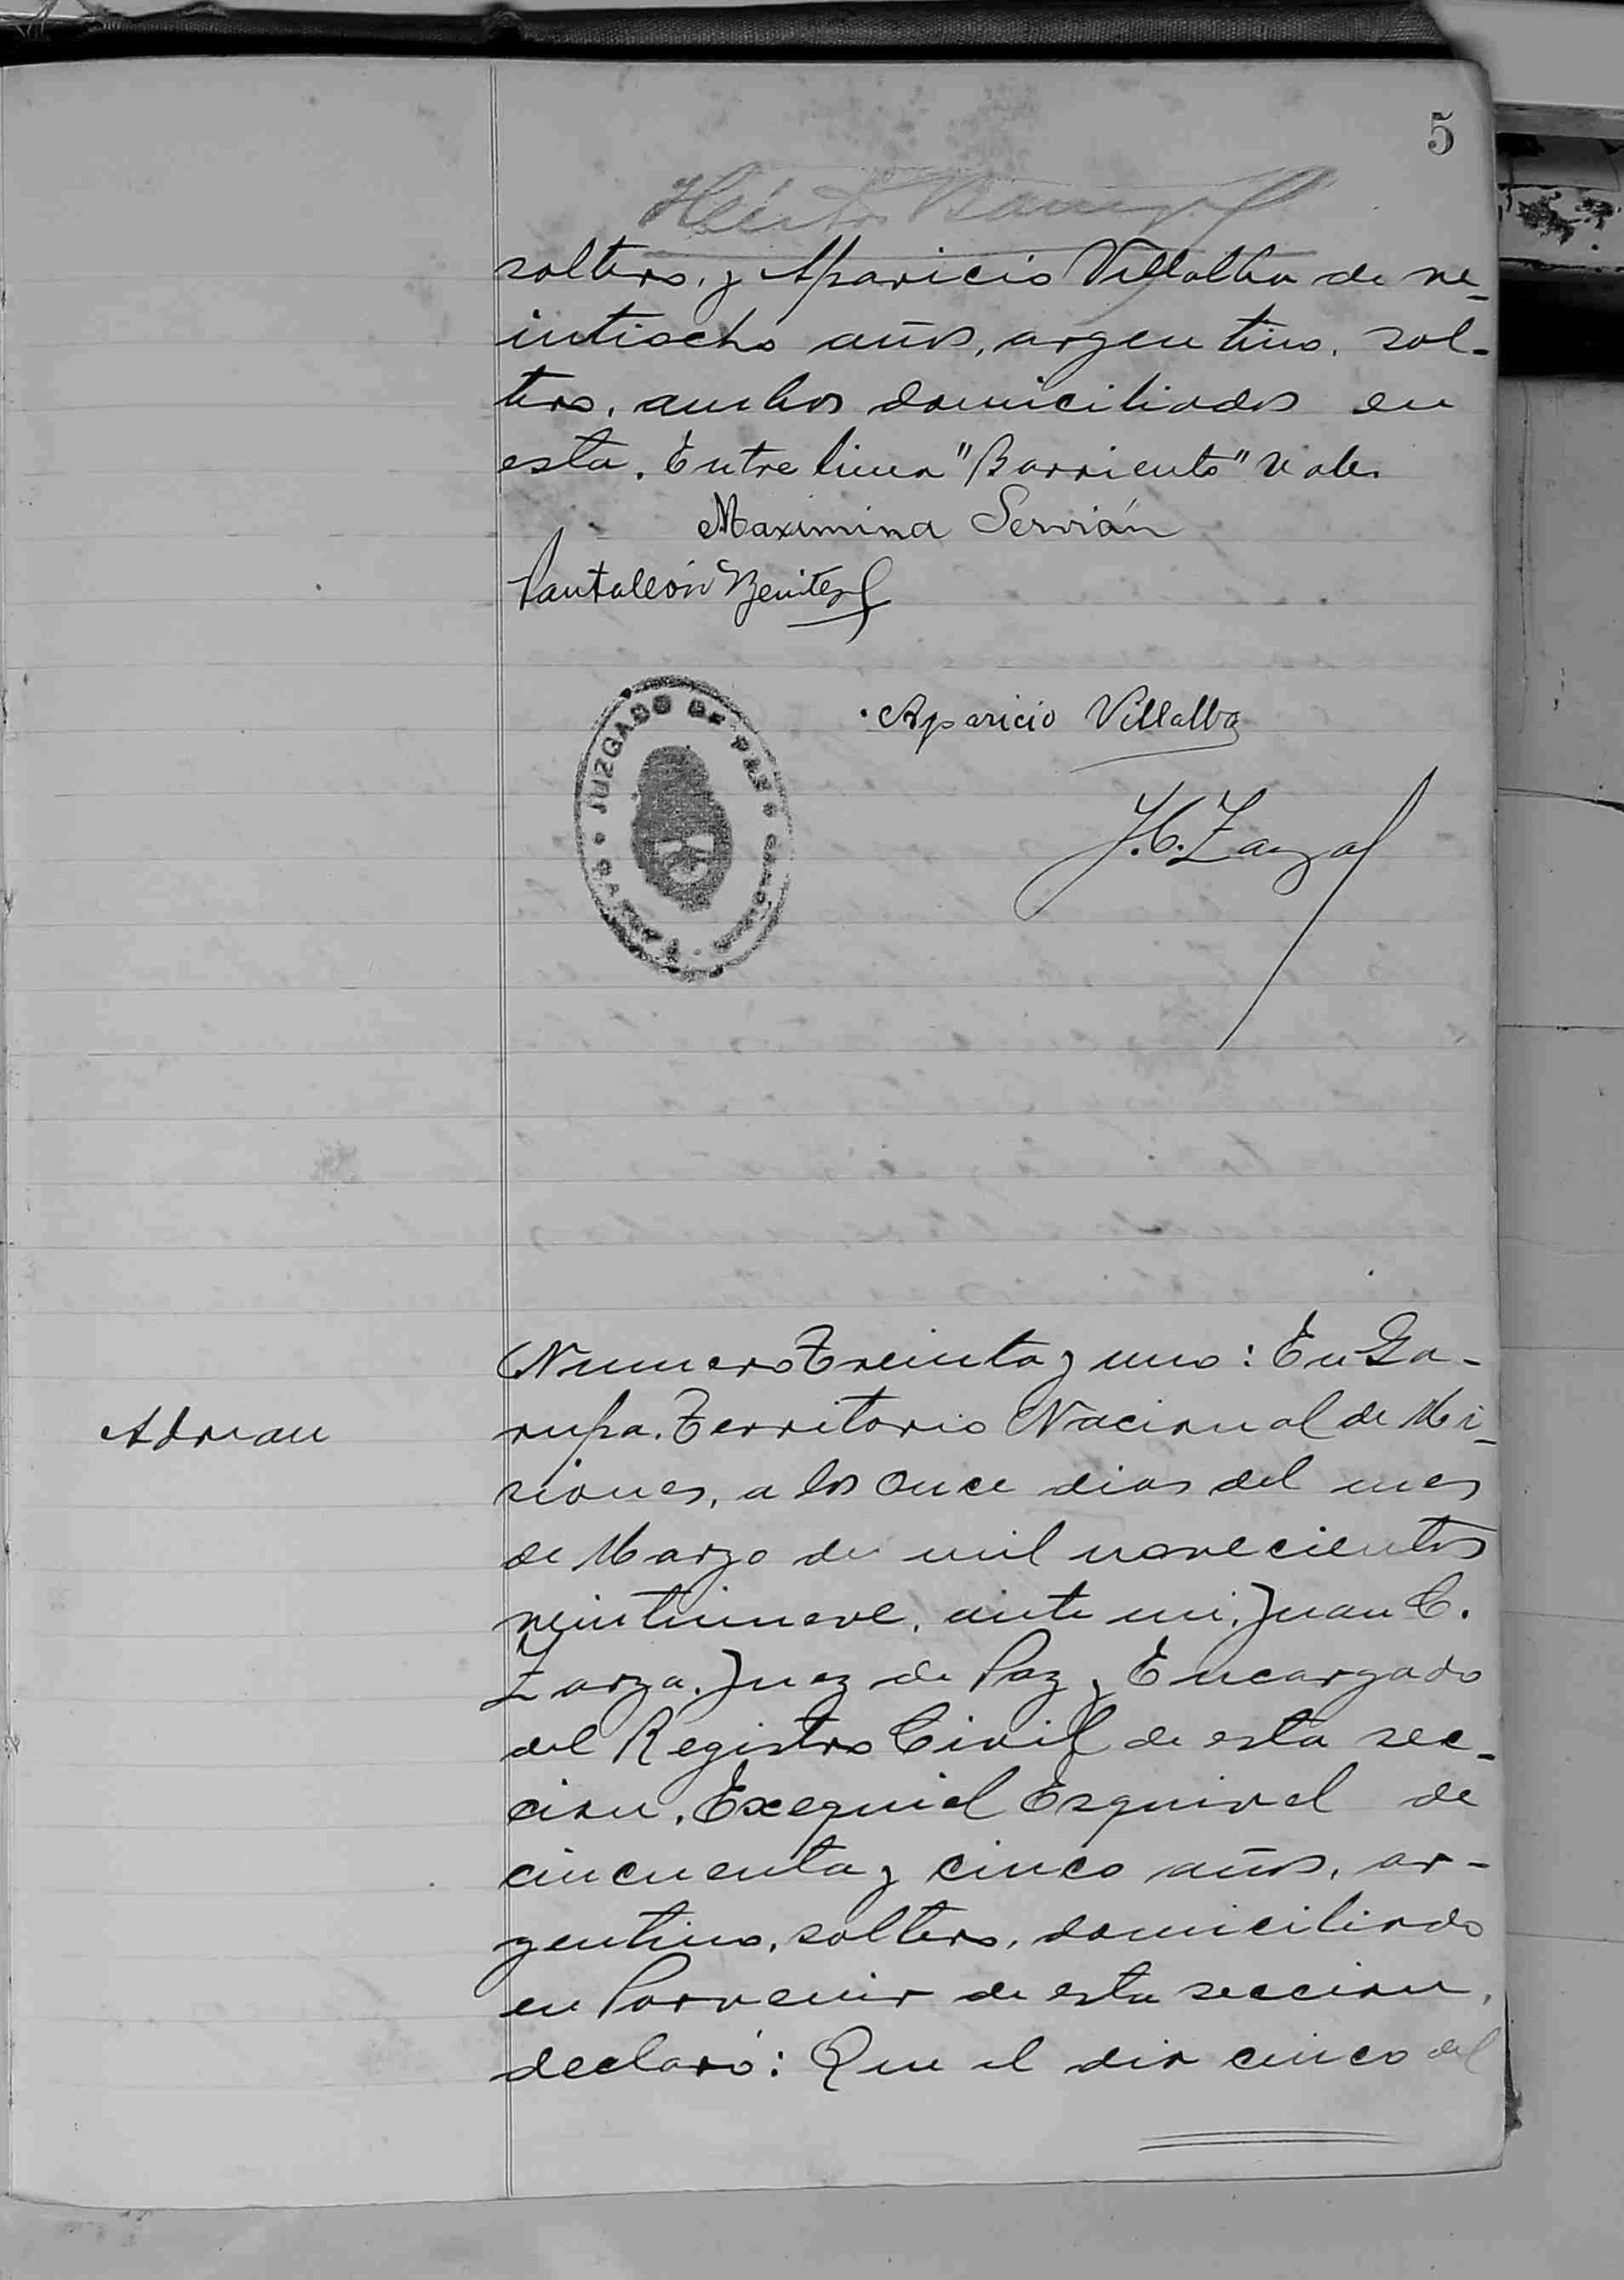 5
Héctor
soltero, y Aparicio Villalba de ve-
intiocho años, argentino, sol-
tero, ambos domiciliados en
esta. Entre linea "Barriento" vale.
Maximina Servián
Pantaleón Benitez
JUZGADO DE PAZ
Aparicio Villalba
J. C. Zarza
Numero Treinta y uno: En Ga-
rupa, Territorio Nacional de Mi-
Adrian
siones, a los once dias del mes
de Marzo de mil novecientos
veintinueve, ante mi, Juan C.
Zarza, Juez de Paz y Encargado
del Registro Civil de esta sec-
cion, Exequiel Esquivel de
cincuenta y cinco años, ar-
gentino, soltero, domiciliado
en Porvenir de esta seccion,
declaró: Que el dia cinco del